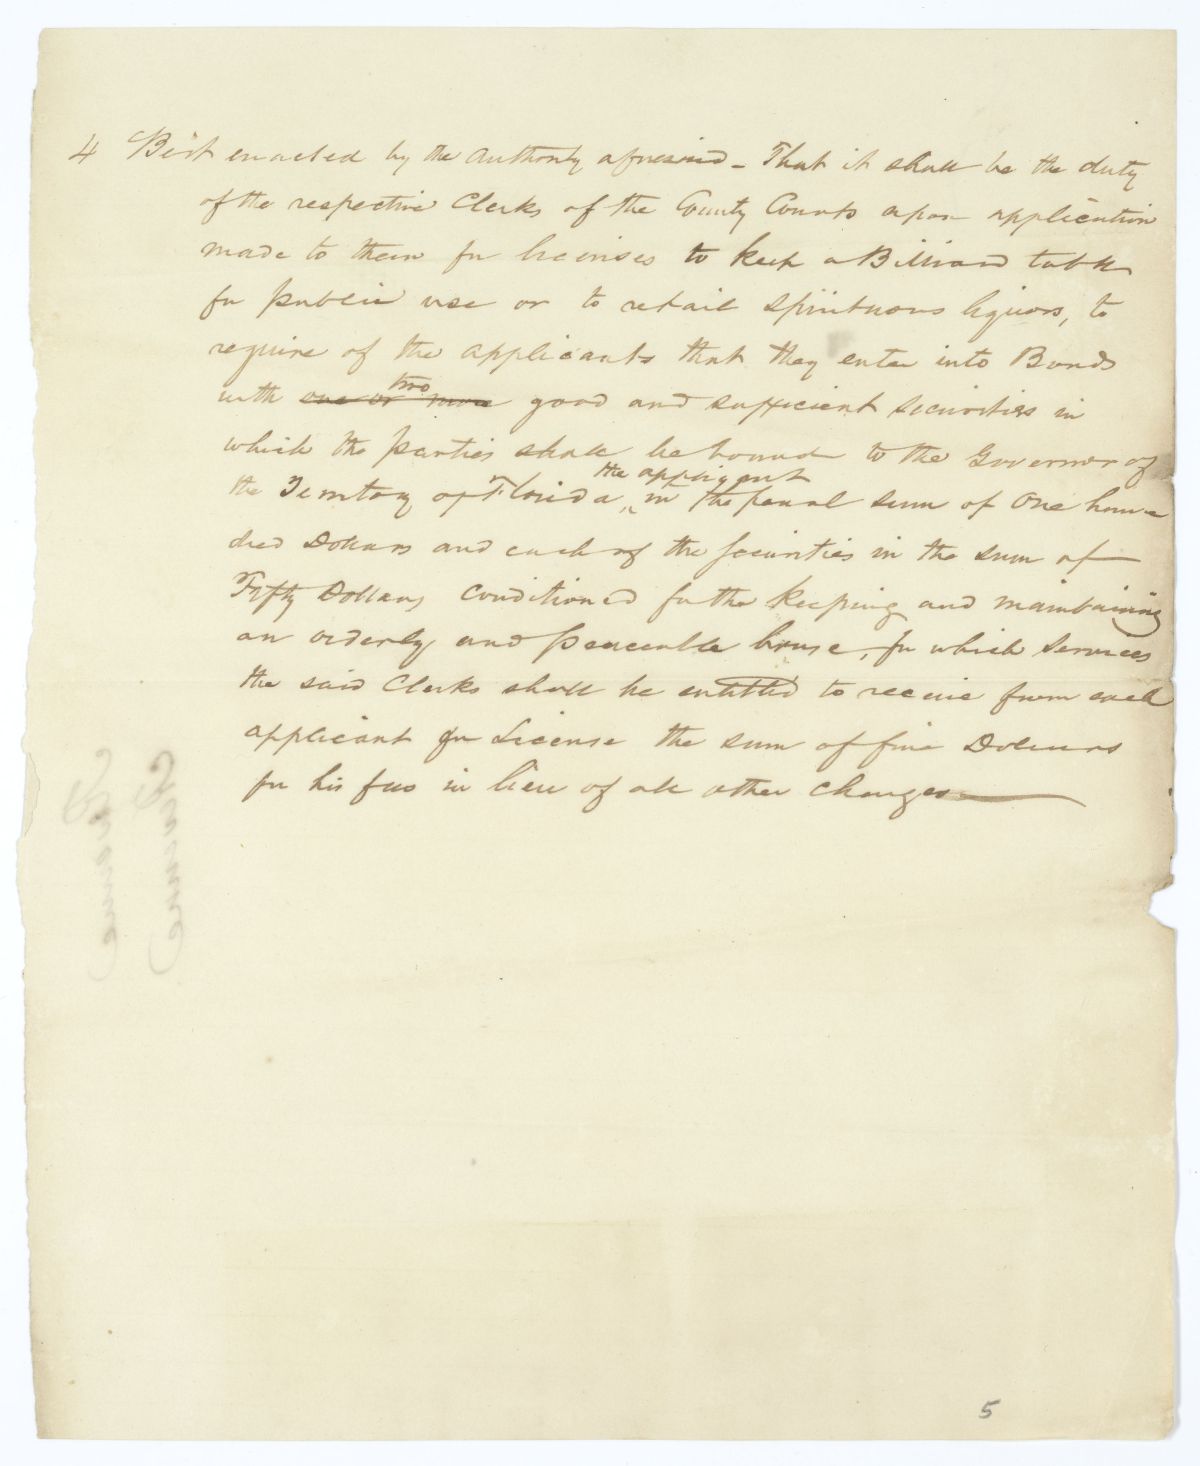 4 Be it enacted by the Authority aforesaid - That it shall be the duty
of the respective Clerks of the County Courts upon application
made to them for licenses to keep a Billiard table
for public use or to retail spirituous liquors, to
require of the applicants that they enter into Bonds
two
with one or more good and sufficient securities in
which the parties shall be bound to the Governor of
the applicant
the Territory of Florida, in the penal sum of One hun-
dred Dollars and each of the securities in the sum of
Fifty Dollars conditioned for the keeping and maintaining
an orderly and peaceable house, for which services
the said Clerks shall be entitled to receive from each
applicant for License the sum of five Dollars
for his fees in lieu of all other charges
5